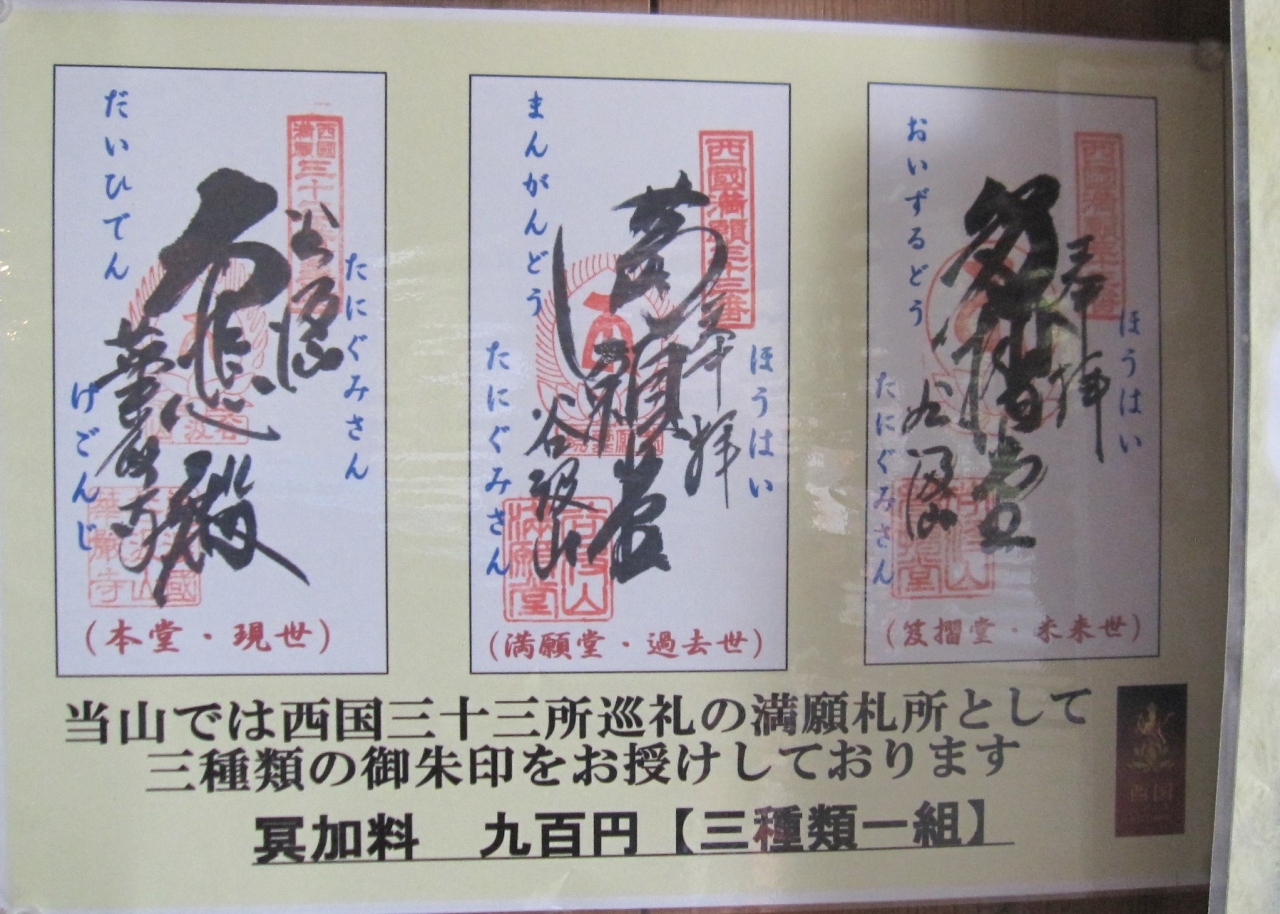 だいひでん
谷汲山
たにぐみさん
大悲殿
華厳寺
げごんじ
(本堂・現世)
まんがんどう
西國満願三十三番
奉拝
ほうはい
満願堂
谷汲山
たにぐみさん
谷汲山
満願堂
(満願堂・過去世)
おいずるどう
西國満願三十三番
奉拝
ほうはい
笈摺堂
谷汲山
たにぐみさん
(笈摺堂・未来世)
当山では西国三十三所巡礼の満願札所として
三種類の御朱印をお授けしております
冥加料 九百円【三種類一組】
西国